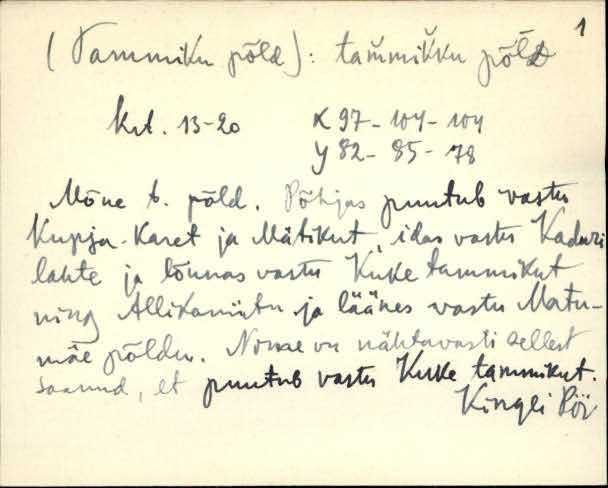 1
(Tammiku põld): tam̆mik̆ku põld
krt. 13-20 X 97 - 104 - 104
y 82 - 85 - 78
Mõne t. põld. Põhjas puutub vastu
Kupja-Karet ja Mätikut, idas vastu Kaduri
lahte ja lõunas vastu Kuke tammikut
ning Allikaniitu ja läänes vastu Matu-
mäe põldu. Nime on nähtavasti sellest
saanud, et puutub vastu Kuke tammikut.
Kingli